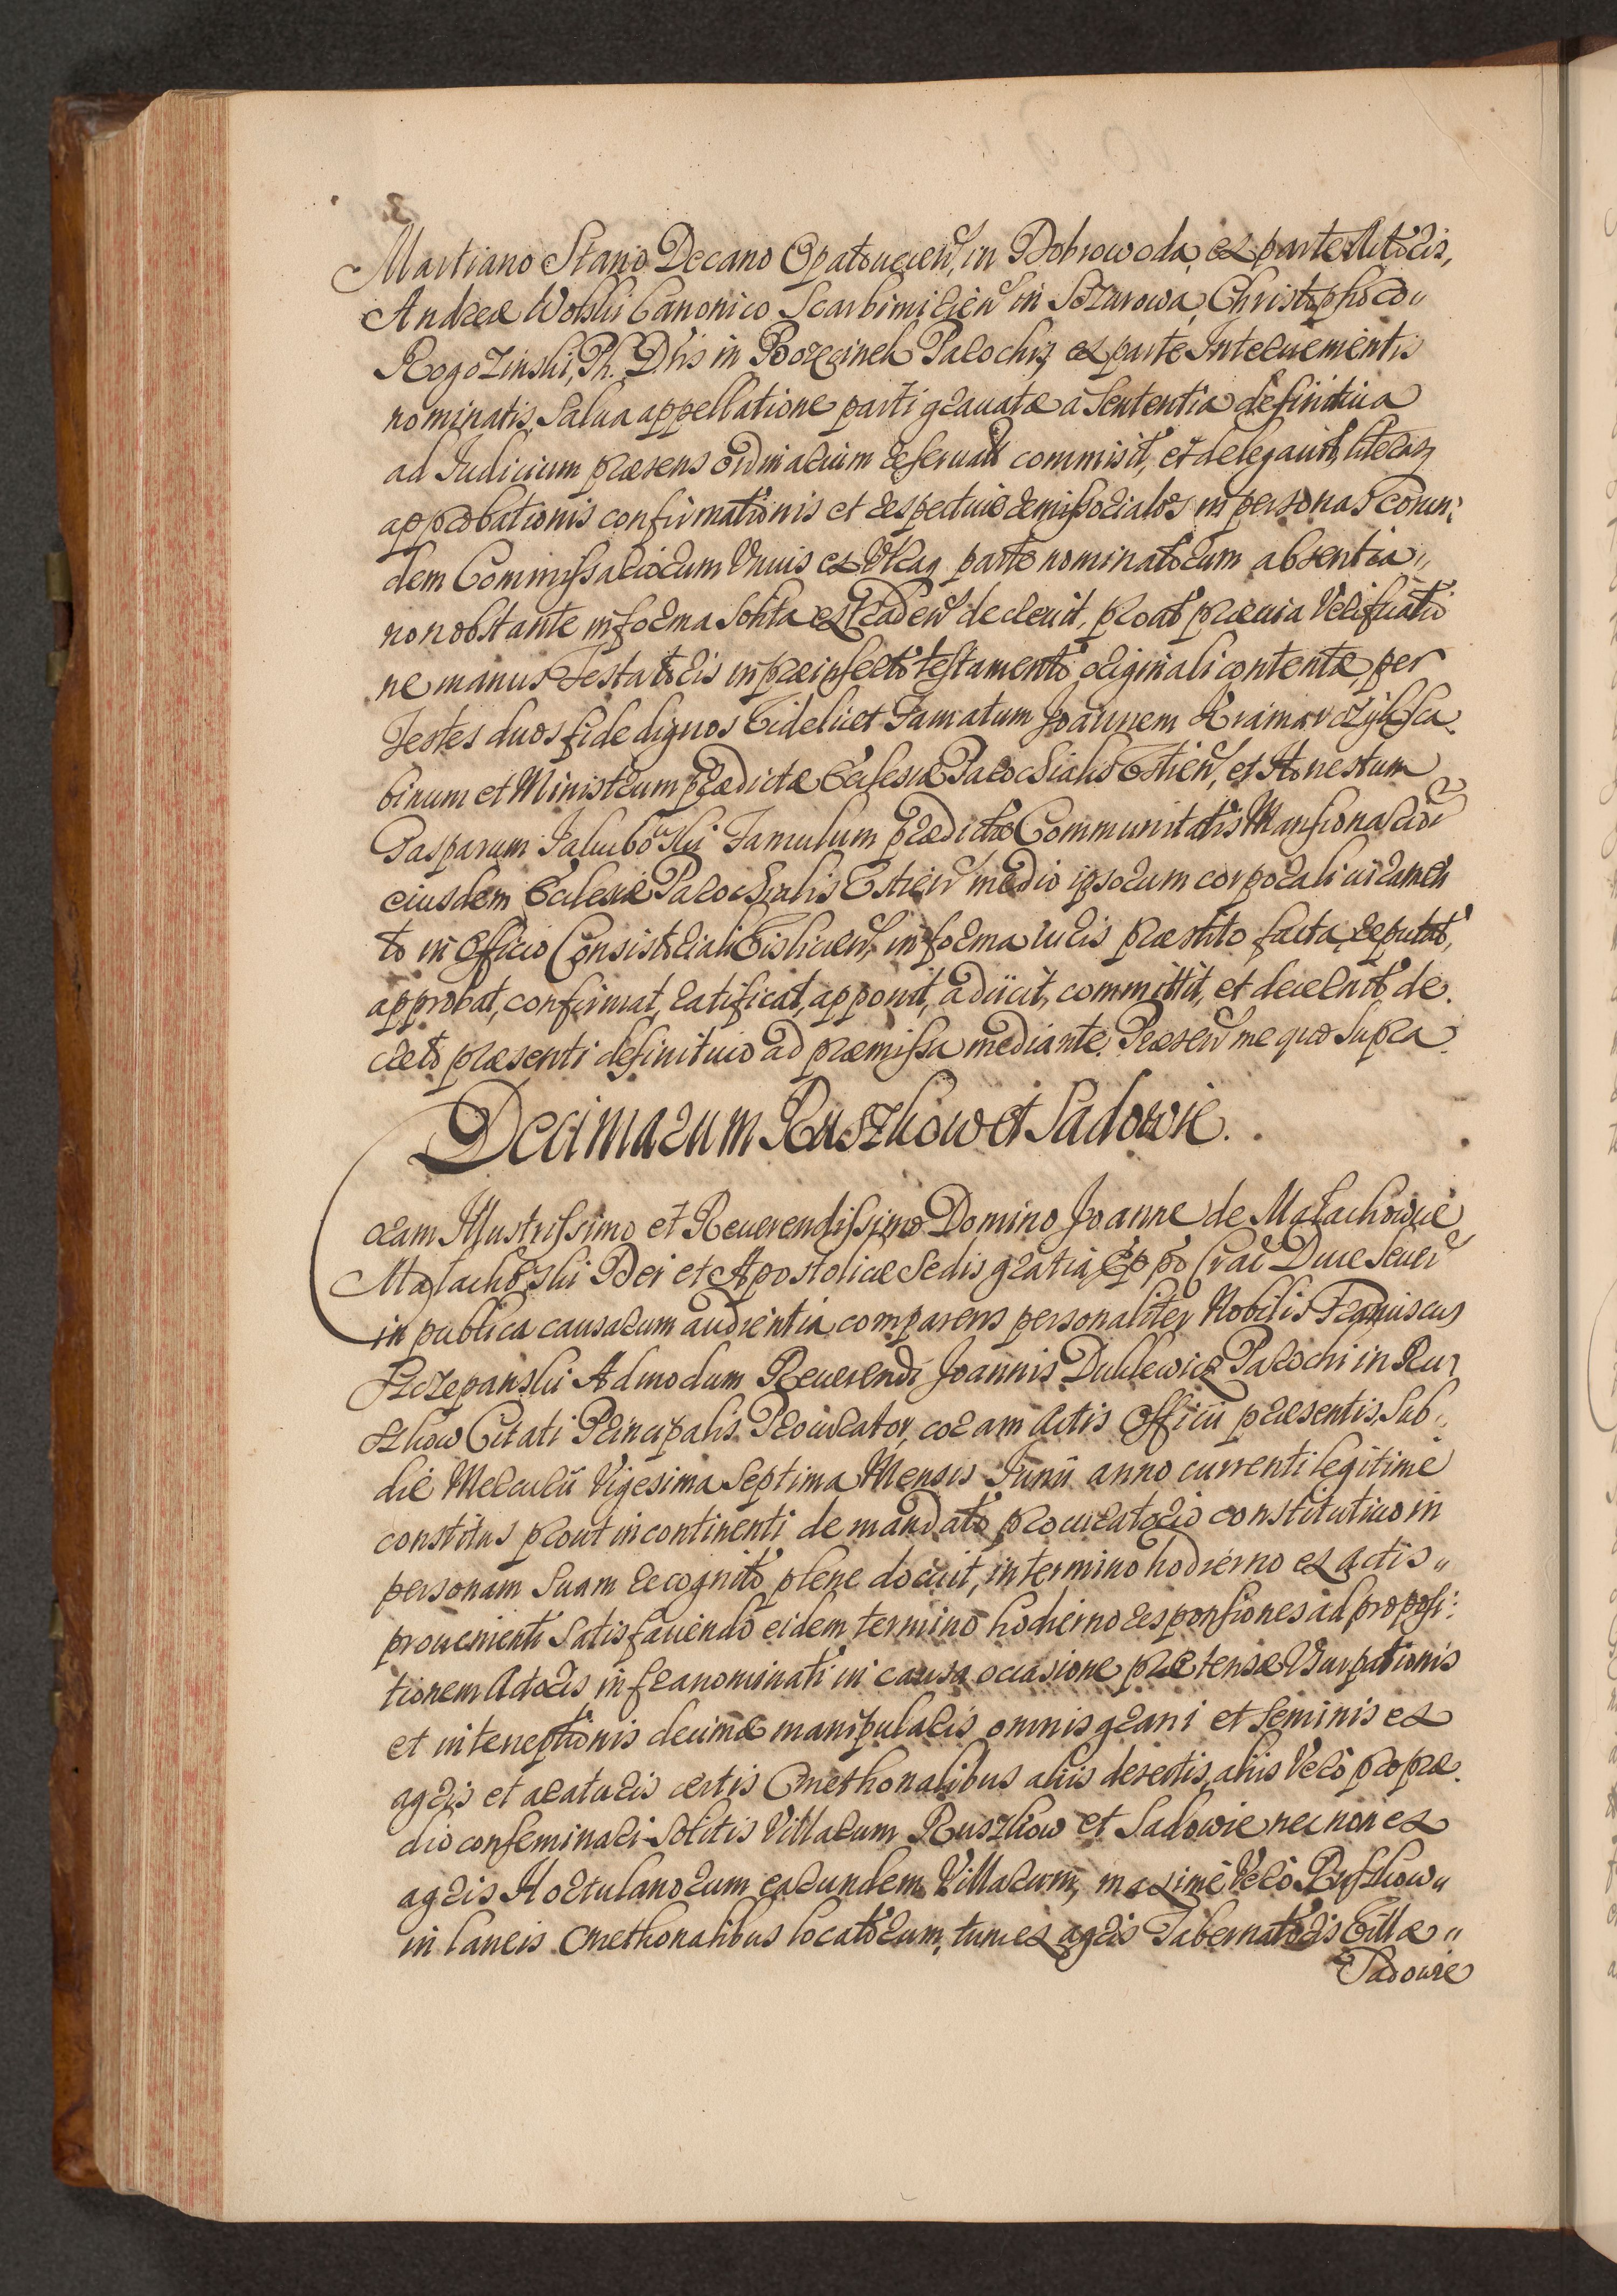 Martiano Stanio Decano Opatouicen, in Dobrowoda, ex parte Actoris,
Andrea Wolski Canonico Scarbimirien in Sczurowa, Christophoro
Rogozinski, Ph. Dris in Borzecinek Parochis ex parte Interuenientis
nominatis, Salua appellatione parti grauatæ a Sententia definitiua
ad Judicium præsens ordinarium reseruat commisit, et delegauit, literasq
approbationis confirmationis et respectiue remissoriales in personas eorun:
dem Commissariorum Vnius ex Vtraq parte nominatorum absentia
non obstante in forma Solita ex traden decreuit, prout præuia Verificatio
ne manus Testatoris in præinserto testamento originali contentæ per
Testes duos fide dignos Videlicet Famatum Joannem Kramarczyk Sca.
binum et Ministrum prædictæ Ecclesiæ Parochialis Estien, et Honestum
Gasparum Jakubowski Famulum prædictæ Communitatis Mansionarior
eiusdem Ecclesiæ Parochialis Estien medio ipsorum corporali iuramen
to in Officio Consistoriali Vislicien, in forma iuris præstito, facta, reputat,
approbat, confirmat, ratificat, apponit, adiicit, committit, et decernit de.
creto præsenti definitiuo ad præmissa mediante. Præsen me quo Supra.
Decimarum Ruszkow et Sadowie.
Coram Illustrissimo et Reuerendissimo Domino Joanne de Małachowice
Małachowski Dei et Apostolicæ Sedis gratia Eppo Crac Duce Seuer
in publica causarum audientia comparens personaliter Nobilis Franciscus
Szczepanski Admodum Reuerendi Joannis Duklewicz Parochi in Ru
szkow Citati Principalis Procurator, coram Actis Officii præsentis, Sub
die Mercurii Vigesima Septima Mensis Junii anno currenti legitime
constitus prout in continenti de mandato procuratorio constitutiuo in
personam Suam recognito plene docuit, in termino hodierno ex actis
prouenienti Satisfaciendo eidem termino hodierno responsiones ad proposi:
tionem Actoris infranominati in causa occasione prætensæ Vsurpationis
et interceptionis decimæ manipularis omnis grani et Seminis ex
agris et araturis certis Cmethonalibus aliis desertis, aliis Vero pro præ.
dio conseminari Solitis Villarum Ruszkow et Sadowie nec non ex
agris Hortulanorum earundem Villarum, maxime Vero Ruszkow
in laneis Cmethonalibus locatorum, tum ex agris Tabernatoris Villæ
Sadowie